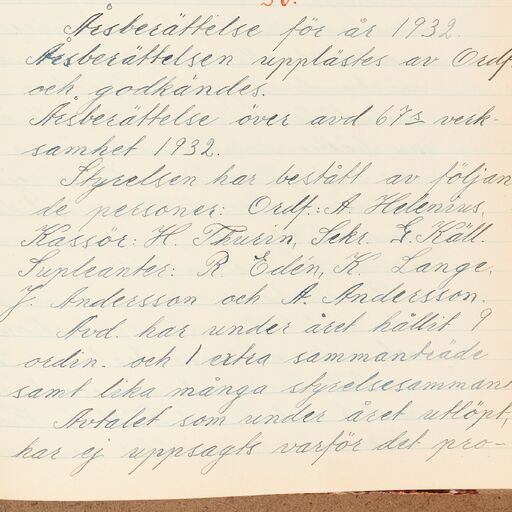 30.
Årsberättelse för år 1932.
Årsberättelsen upplästes av Ordf
och godkändes.
Årsberättelse över avd 67s verk-
samhet 1932.
Styrelsen har bestått av följan
de personer: Ordf.: A. Helenius,
Kassör: H. Thurin, Sekr. G. Käll.
Supleanter: R Edén, K. Lange,
J. Andersson och A. Andersson.
Avd. har under året hållit 9
ordin. och 1 extra sammanträde
samt lika många styrelsesammant
Avtalet som under året utlöpt,
har ej uppsagts varför det pro-